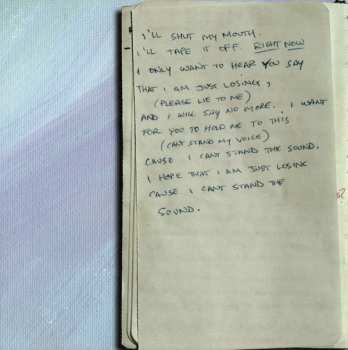 I'LL SHUT MY MOUTH.
I'LL TAPE IT OFF. RIGHT NOW
I ONLY WANT TO HEAR YOU SAY
THAT I AM JUST LOSING,
(PLEASE LIE TO ME)
AND I WILL SAY NO MORE. I WANT
FOR YOU TO HOLD ME TO THIS
(CANT STAND MY VOICE)
CAUSE I CANT STAND THE SOUND.
I HOPE THAT I AM JUST LOSING
CAUSE I CANT STAND THE
SOUND.